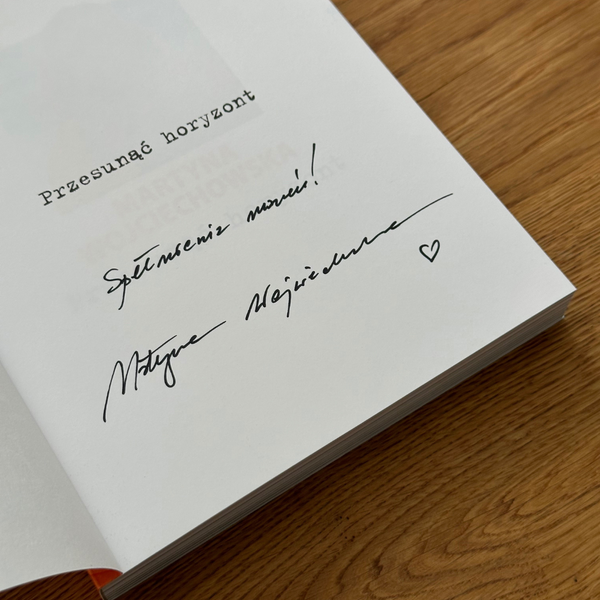 Przesunąć horyzont
Spełnienia marzeń!
Martyna Wojciechowska